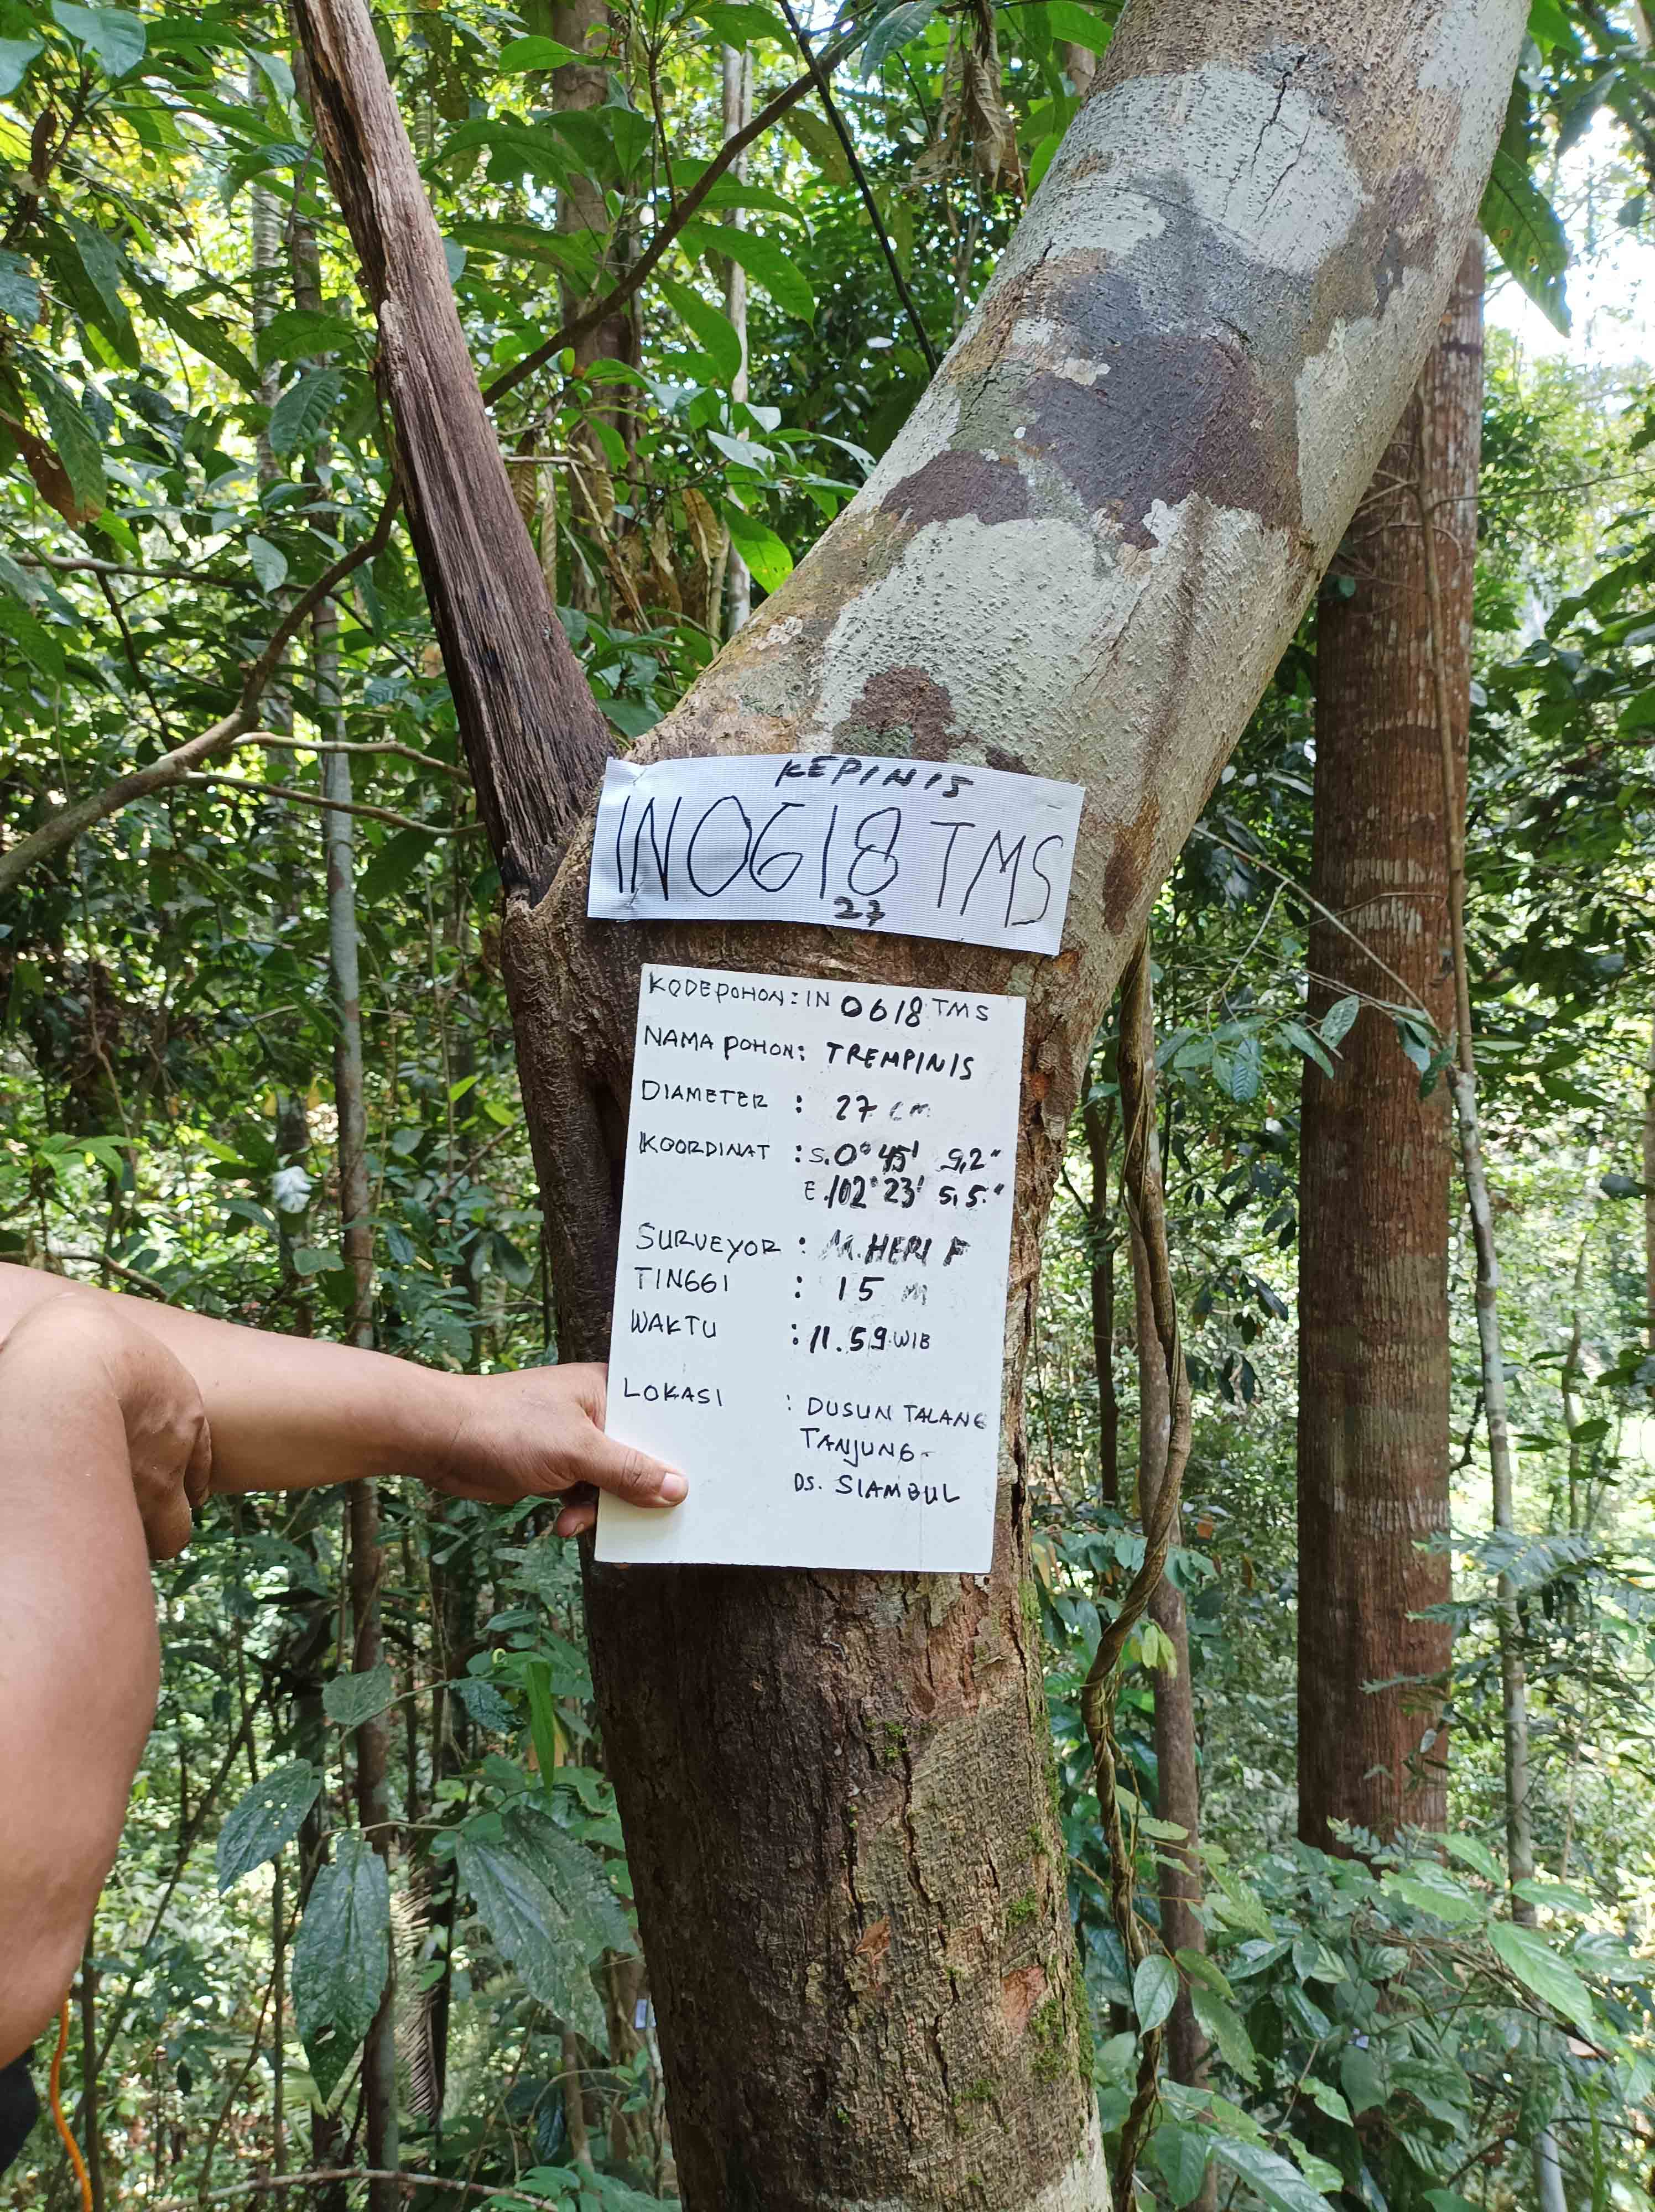 KEPINIS
IN0618 TMS
27
KODE POHON : IN 0618 TMS
NAMA POHON : TREMPINIS
DIAMETER : 27 cm
KOORDINAT : S. 0° 45' 9,2"
E. 102° 23' 5,5"
SURVEYOR : M. HERI F
TINGGI : 15 m
WAKTU : 11.59 WIB
LOKASI : DUSUN TALANG
TANJUNG-
DS. SIAMBUL